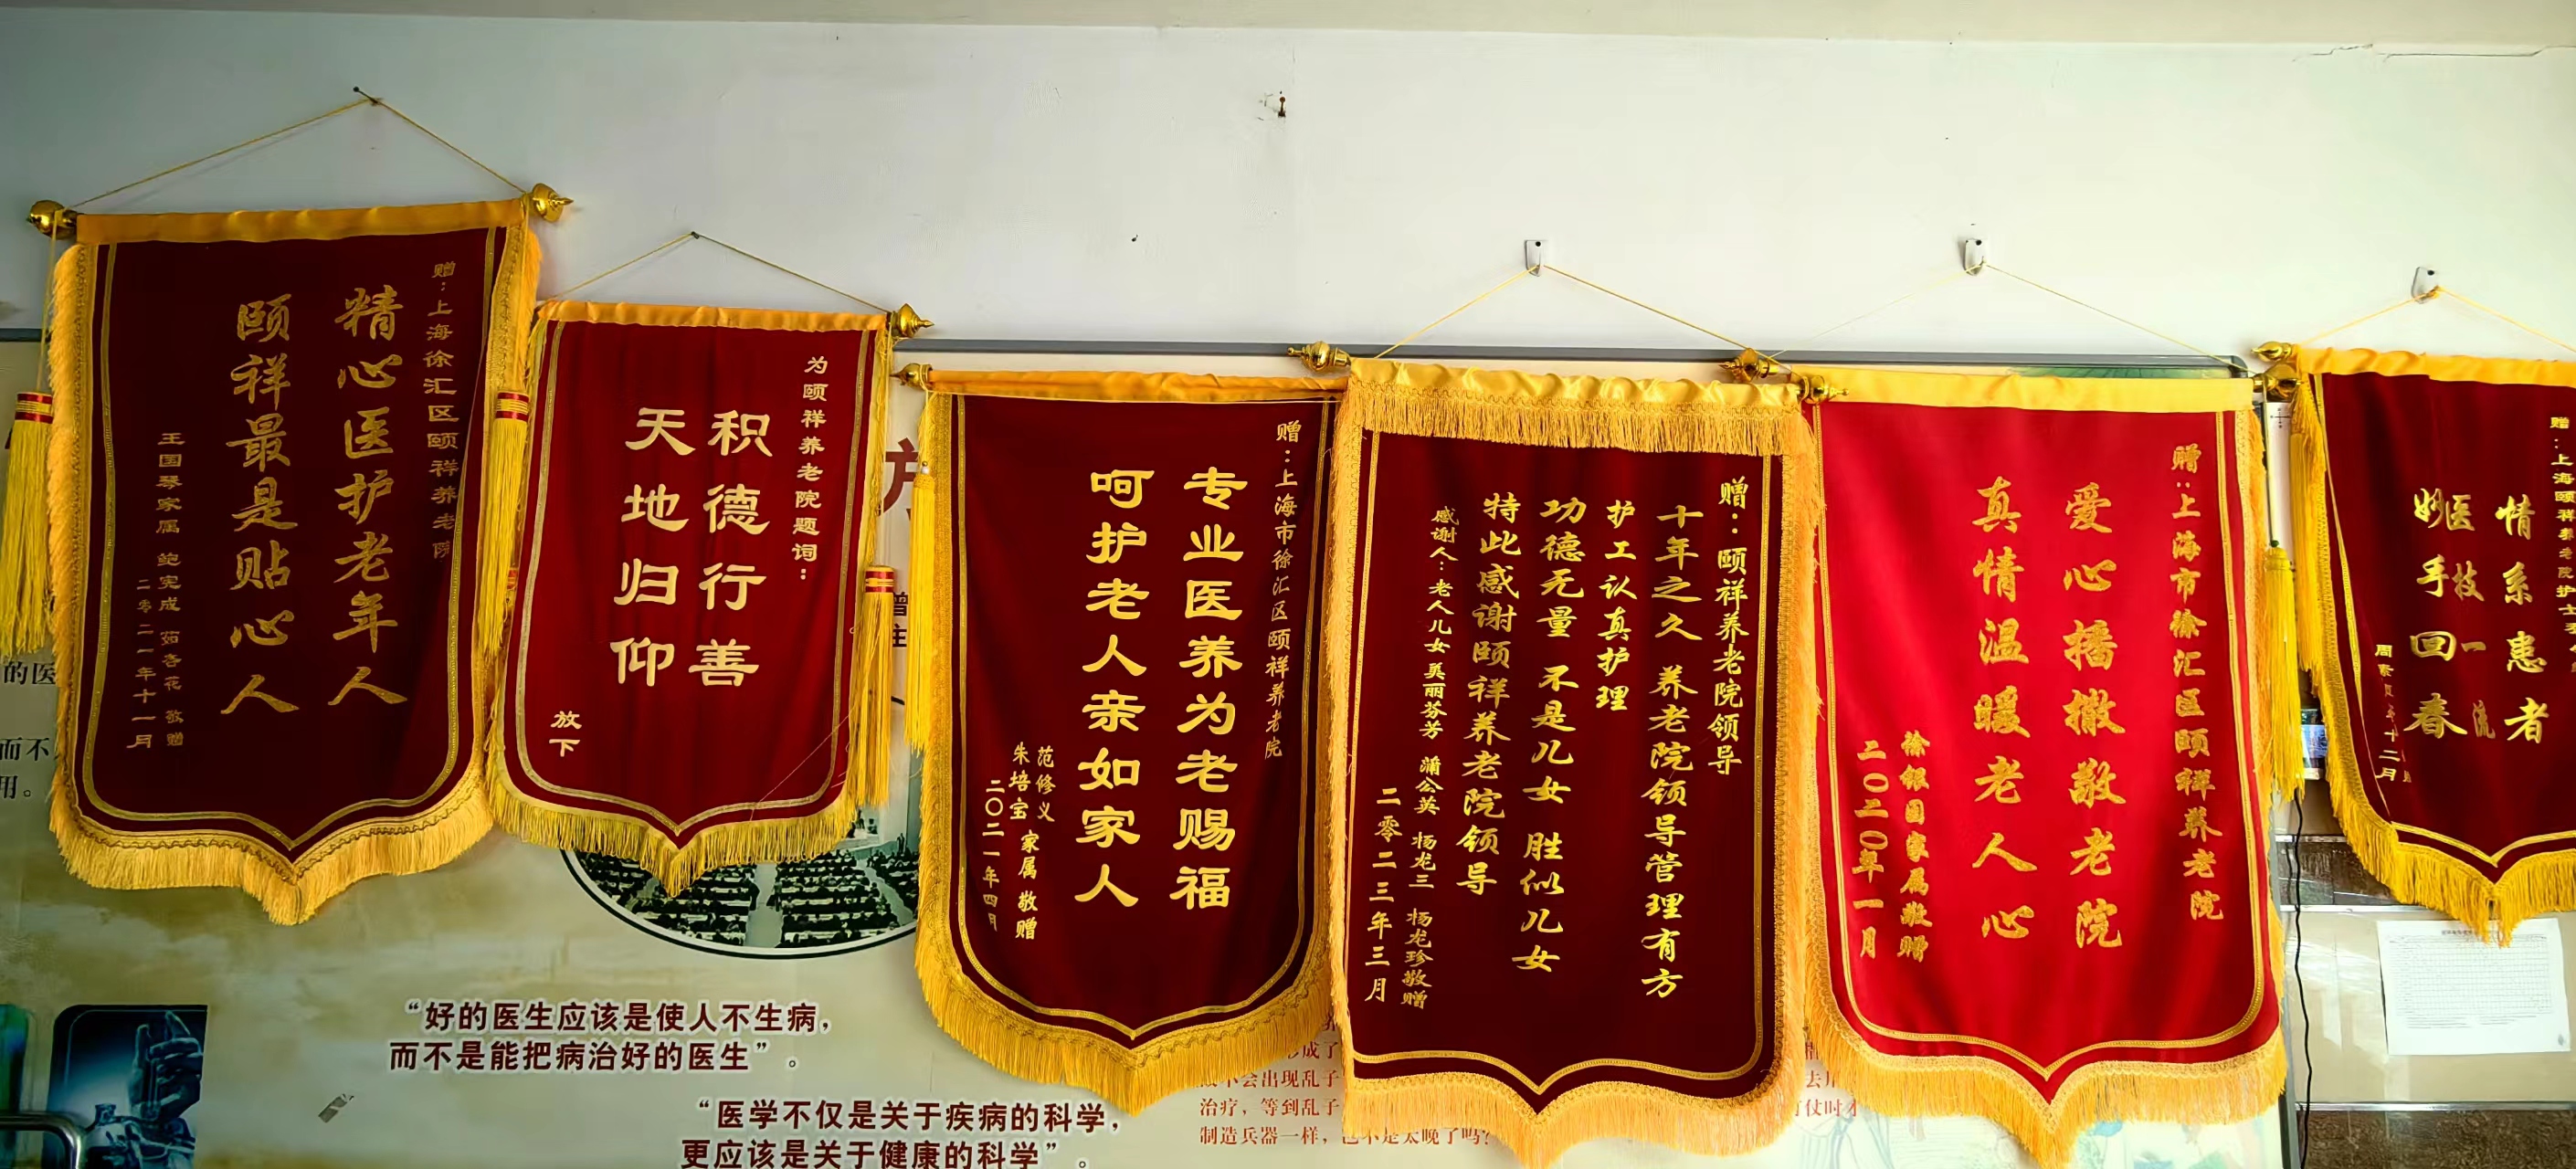 赠：上海徐汇区颐祥养老院
精心医护老年人
颐祥最是贴心人
王国琴家属
敬赠
二零二一年十一月
为颐祥养老院题词：
积德行善
天地归仰
放下
赠：上海市徐汇区颐祥养老院
专业医养为老赐福
呵护老人亲如家人
范修义
朱培宝
家属 敬赠
二〇二一年四月
赠：颐祥养老院领导
十年之久 养老院领导管理有方
护工认真护理
功德无量 不是儿女 胜似儿女
特此感谢颐祥养老院领导
感谢人：老人儿女 美丽芬芳 蒲公英 杨龙三 杨龙珍敬赠
二零二三年三月
赠：上海市徐汇区颐祥养老院
爱心播撒敬老院
真情温暖老人心
徐银国家属敬赠
二〇二〇年一月
赠：上海颐祥养老院护
情系患者
医技一流
妙手回春
十二月
“好的医生应该是使人不生病，
而不是能把病治好的医生”。
“医学不仅是关于疾病的科学，
更应该是关于健康的科学”。
的医
而不
用。
形成了
不会出现乱子
治疗，等到乱子
制造兵器一样，也不是太晚了吗?